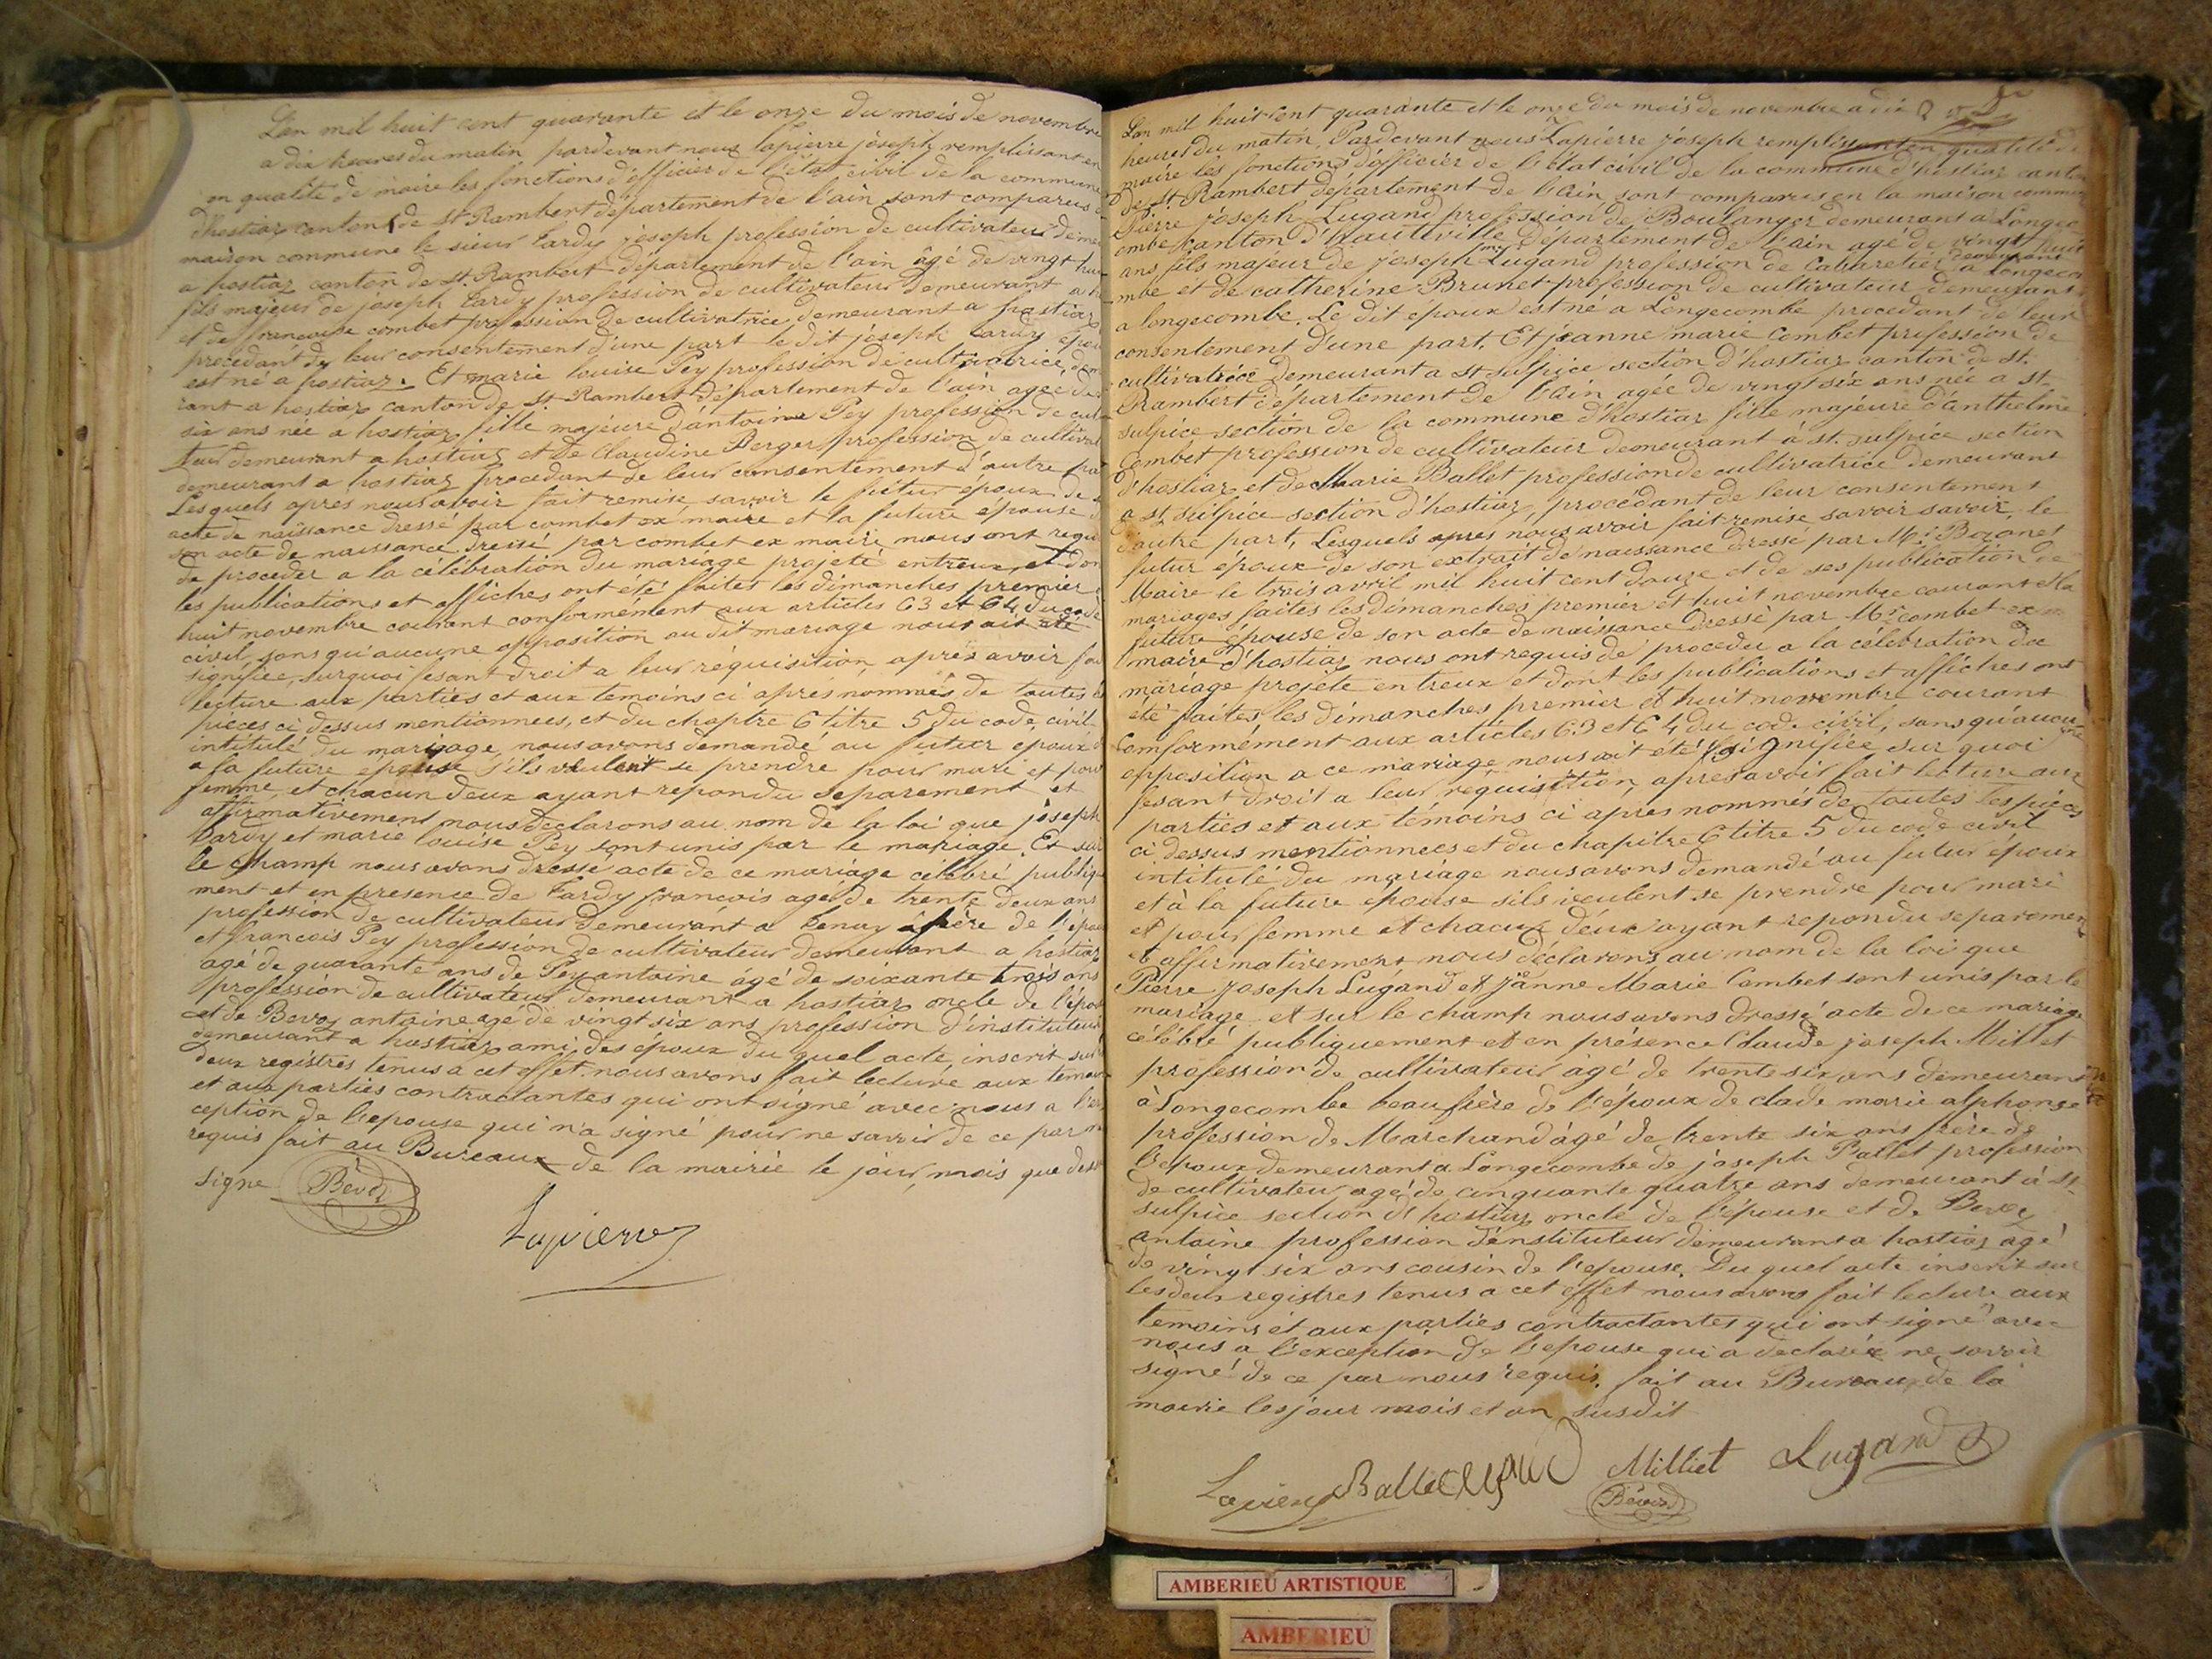 L'an mil huit cent quarante et le onze du mois de novembre
a dix heures du matin pardevant nous lapierre joseph remplissant en
en qualité de maire les fonctions d'officier de l'état civil de la commune
d'hostiaz canton de st Rambert département de l'ain sont comparus
maison commune le sieur Lardy joseph profession de cultivateur
a hostiaz canton de st. Rambert département de l'ain âgé de vingt
fils majeur de joseph Lardy profession de cultivateur demeurant a
et de francoise combet profession de cultivatrice demeurant a hostiaz
procedant de leur consentement d'une part le dit joseph Lardy
est né a hostiaz. Et marie louise Pey profession de cultivatrice
rant a hostiaz canton de st Rambert département de l'ain agee de
six ans née a hostiaz fille majeure d'antoine Pey profession de
teur demeurant a hostiaz et de Claudine Berger profession de
demeurant a hostiaz procedant de leur consentement d'autre
Lesquels apres nous avoir fait remise, savoir le futur époux de
acte de naissance dressé par combet ex maire et la future epouse
son acte de naissance dressé par combet ex maire nous ont
de proceder a la célébration du mariage projeté entreux et
les publications et affiches ont été faites les dimanches premier
huit novembre courant conformément aux articles 63 et 64 du code
civil sans qu'aucune opposition au dit mariage nous ait été
signifiée, surquoi fesant droit a leur réquisition, aprés avoir
lecture aux parties et aux temoins ci aprés nommés de toutes
pieces ci dessus mentionnées, et du chaptre 6 titre 5 du code civil
intitulé du mariage, nous avons demandé au futur époux
a la future épouse s'ils veulent se prendre pour mari et pour
femme, et chacun deux ayant repondu séparement et
affirmativement nous declarons au nom de la loi que joseph
Lardy et marie louise Pey sont unis par le mariage. Et sur
le champ nous avons dressé acte de ce mariage célébré
ment et en presence de Lardy francois agé de trente deux ans
profession de cultivateur demeurant a tenay frère de
et francois Pey profession de cultivateur demeurant a hostiaz
agé de quarante ans de Pey antoine âgé de soixante trois ans
profession de cultivateur demeurant a hostiaz oncle de
et de Bevoz antoine agé de vingt six ans profession d'instituteur
demeurant a hostiaz ami des époux du quel acte inscrit sur
deux registres tenus a cet effet nous avons fait lecture aux
et aux parties contractantes qui ont signé avec nous a
ception de l'epouse qui n'a signé pour ne savoir de ce par
requis fait au Bureaux de la mairie le jour, mois que
signe Bevoz
Lapierre
L'an mil huit cent quarante et le onze du mois de novembre a dix
heures du matin. Pardevant nous Lapierre joseph remplissant en qualité de
maire les fonctions d'officier de l'état civil de la commune d'hostiaz canton
de st. Rambert département de l'Ain, sont comparus en la maison commune
Pierre joseph Lugand profession de Boulanger demeurant a Longec
ombe canton d'hauteville département de l'ain agé de vingt huit
ans fils majeur de joseph Lugand profession de Cabaretier demeurant a longeco
mbe et de catherine Brunet profession de cultivateur demeurant
a longecombe. Le dit époux est né a Longecombe procedant de leur
consentement d'une part. Et jeanne marie Combet profession de
cultivatrice demeurant a st sulpice section d'hostiaz canton de st.
Rambert département de l'Ain agée de vingt six ans née a st.
sulpice section de la commune d'hostiaz fille majeure d'anthelme
Combet profession de cultivateur demeurant à st. sulpice section
d'hostiaz et de Marie Ballet profession de cultivatrice demeurant
a st sulpice section d'hostiaz, procédant de leur consentement
d'autre part, Lesquels apres nous avoir fait remise savoir savoir, le
futur époux de son extrait de naissance dressé par Mr Bozonet
Maire le trois avril mil huit cent douze et de ses publication de
mariages faites les dimanches premier et huit novembre courant et la
future épouse de son acte de naissance dressé par Mr combet ex
maire d'hostiaz nous ont requis de proceder a la célébration du
mariage projeté entreux et dont les publications et affiches ont
été faites les dimanches premier et huit novembre courant
Comformément aux articles 63 et 64 du code civil, sans qu'aucune
opposition a ce mariage nous ait été signifiée sur quoi
fesant droit a leur requisition, apres avoir fait lecture aux
parties et aux témoins ci apres nommés de toutes les pièces
ci dessus mentionnees et du chapitre 6 titre 5 du code civil
intitulé du mariage nous avons demandé au futur époux
et à la future épouse sils veulent se prendre pour mari
et pour femme et chacun d'eux ayant repondu separement
et affirmativement nous déclarons au nom de la loi que
Pierre joseph Lugand et jeanne Marie Combet sont unis par le
mariage et sur le champ nous avons dressé acte de ce mariage
célébré publiquement et en présence Claude joseph Millet
profession de cultivateur agé de trente six ans demeurant
à Longecombe beaufrère de l'époux de clade marie alphonse
profession de Marchand âgé de trente six ans frère de
l'epoux demeurant a Longecombe de joseph Ballet profession
de cultivateur agé de cinquante quatre ans demeurant à st
sulpice section d'hostiaz oncle de l'épouse et de Bevoz
antoine profession d'énstituteur demeurant a hostiaz agé
de vingt six ans cousin de l'epouse. Du quel acte inscrit sur
les deux registres tenus a cet effet nous avons fait lecture aux
temoins et aux parties contractantes qui ont signé avec
nous a l'exception de l'epouse qui a declarée ne savoir
signé de ce par nous requis. fait au Bureaux de la
mairie les jour mois et an susdit
Lapierre Ballet Lugand Milliet Lugand
Bévoz
AMBERIEU ARTISTIQUE
AMBERIEU